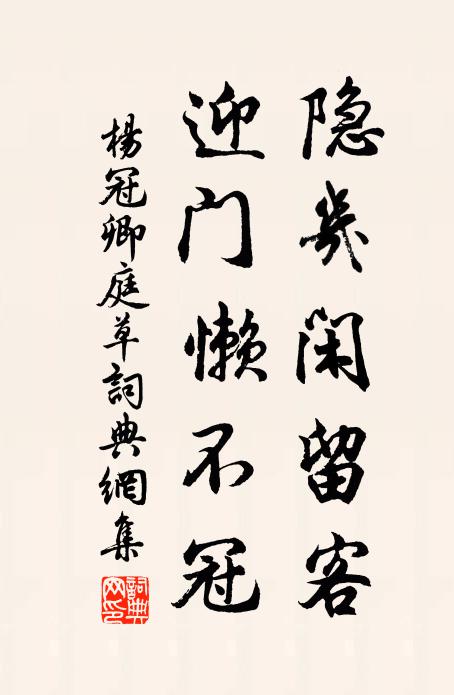 隐幾闲留客
迎门懒不冠
楊冠卿庭草詞典網集
詞典网印